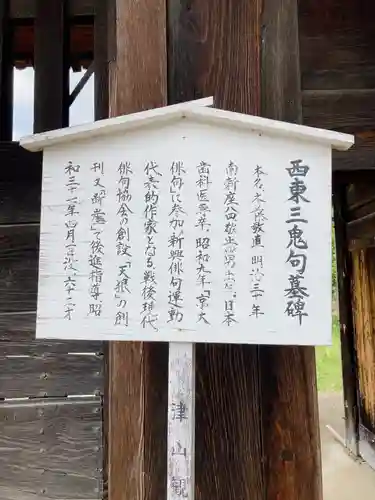 西東三鬼句墓碑
本名、斉藤敬直、明治三十三年
南新座八四敬止四男出生、日本
歯科医専卒、昭和九年「京大
俳句」に参加、新興俳句運動
代表的作家となる、戦後、現代
俳句協会の創設、「天狼」の創
刊又「断崖」で後進指導、昭
和三十七年四月一日没、六十二才
津山観